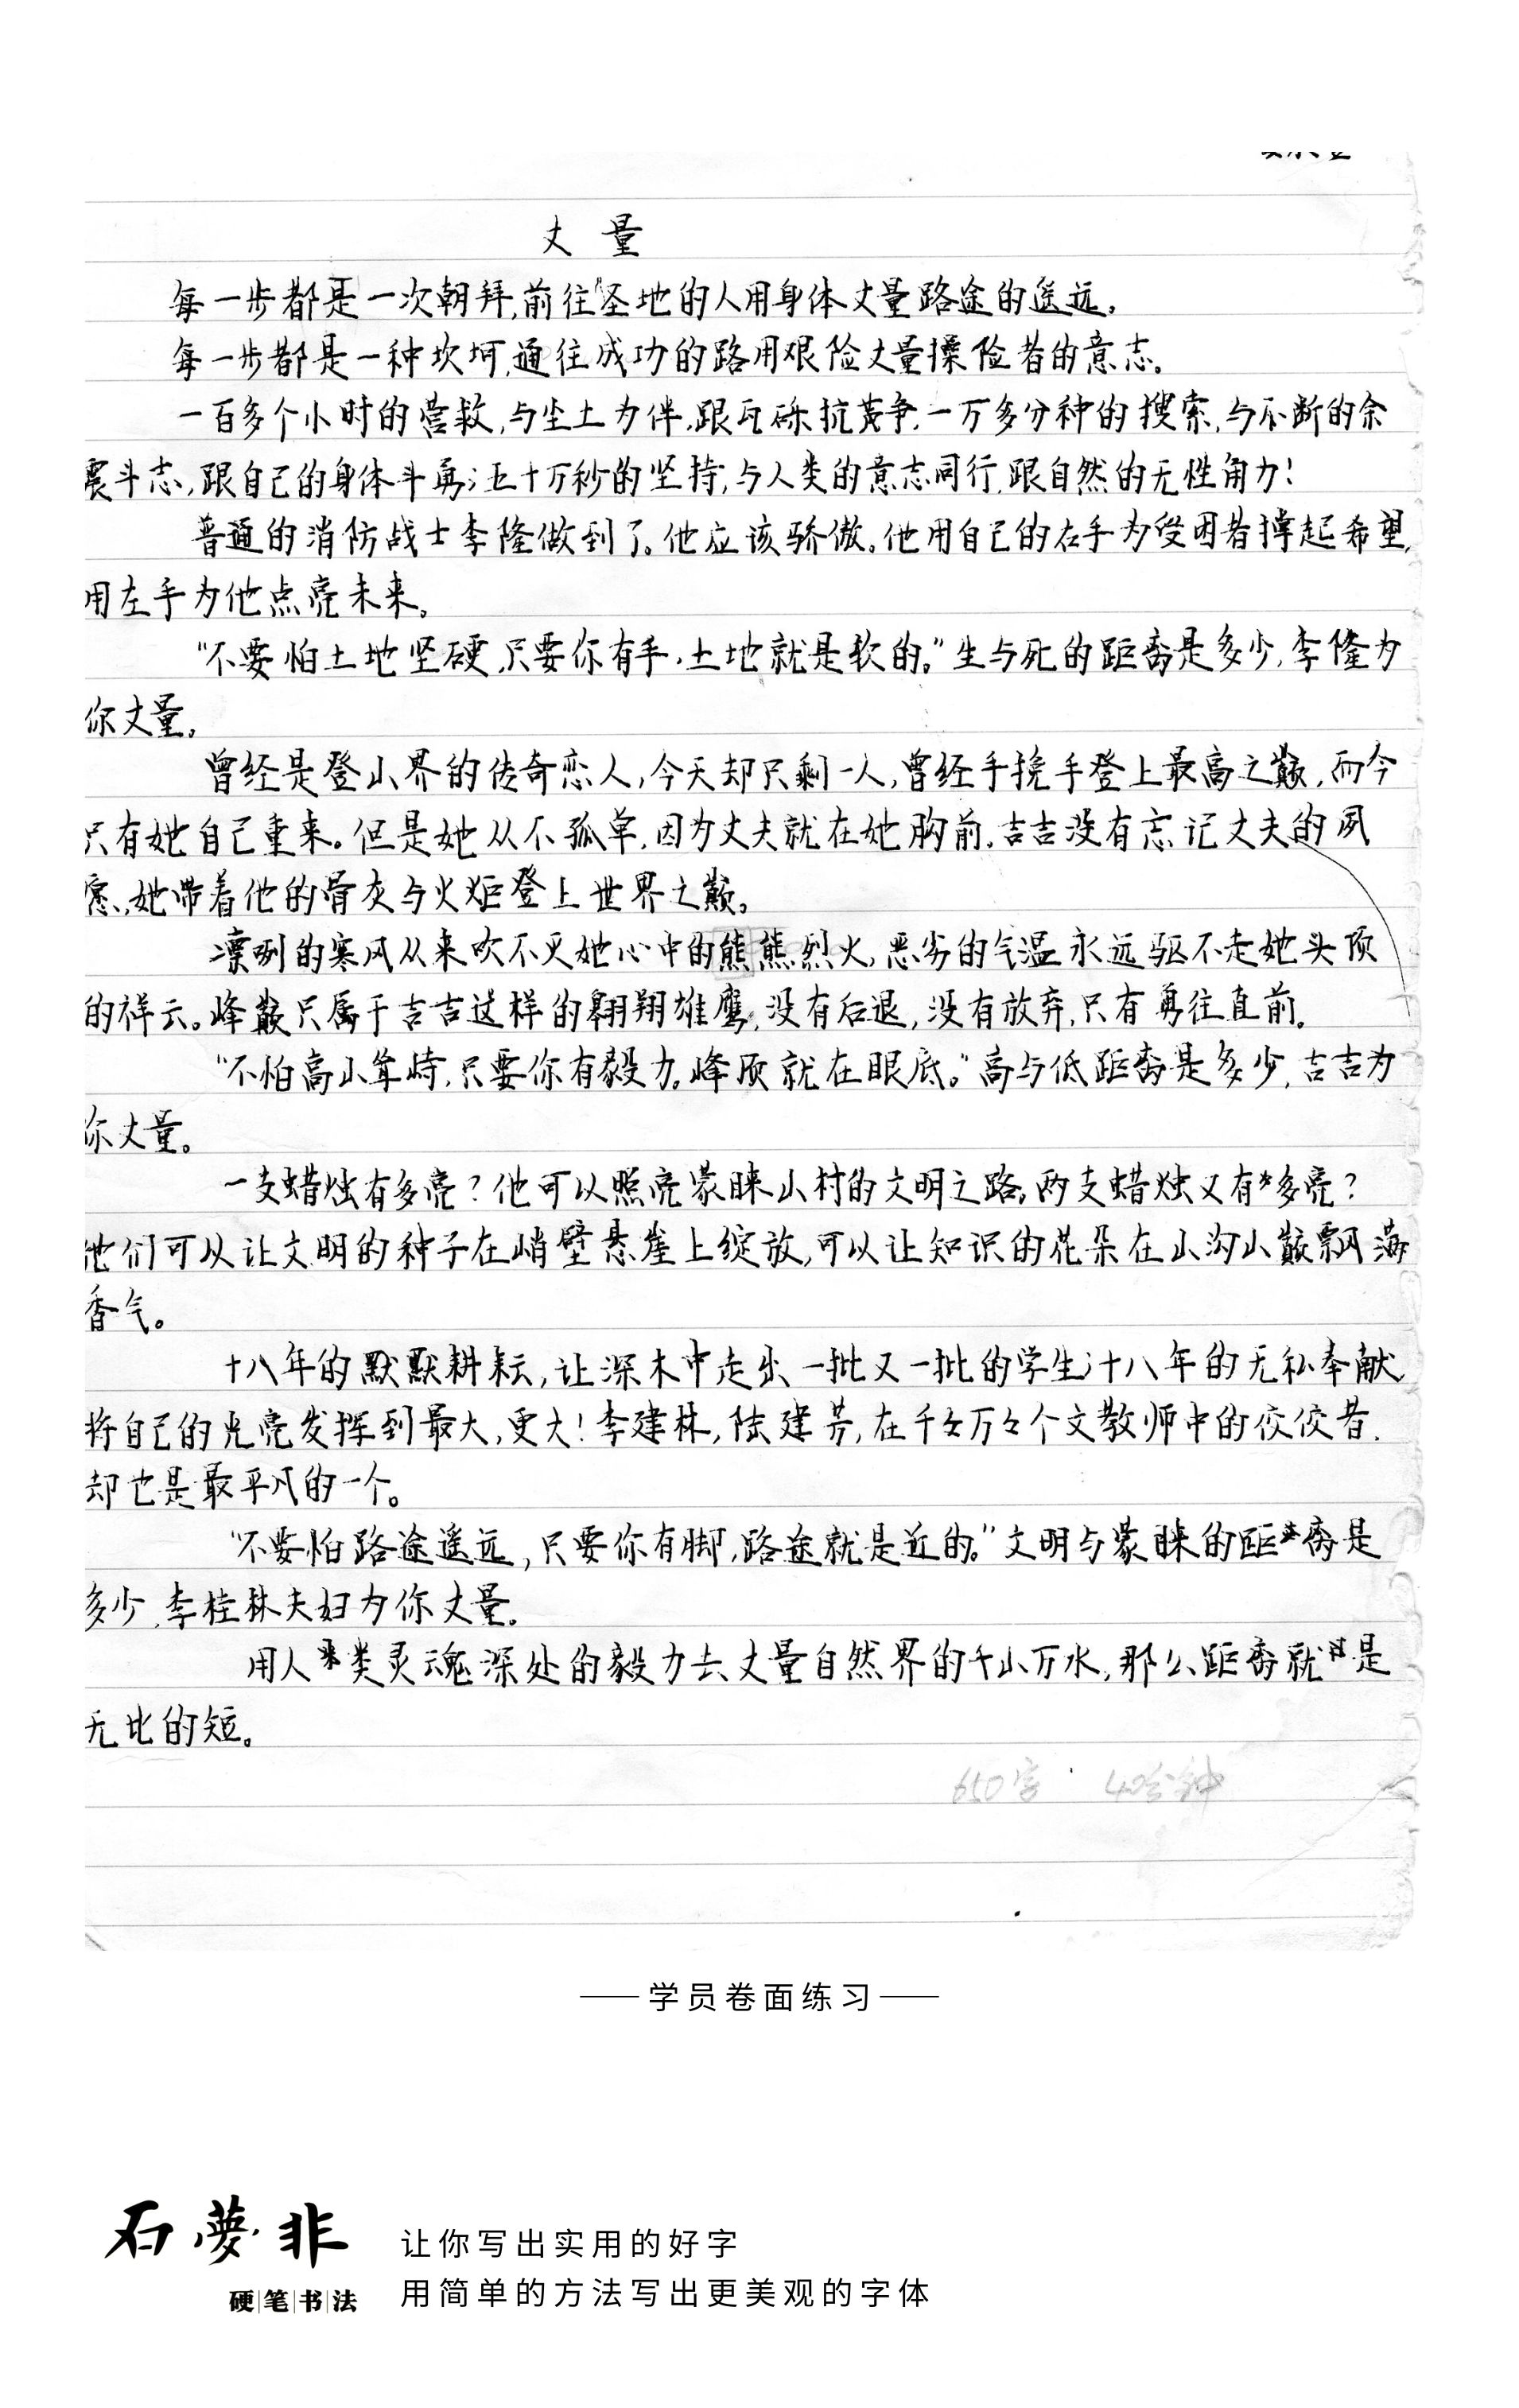 丈量
每一步都是一次朝拜,前往圣地的人用身体丈量路途的遥远。
每一步都是一种坎坷,通往成功的路用艰险丈量探险者的意志。
一百多个小时的营救,与尘土为伴,跟瓦砾抗争,一万多分种的搜索,与不断的余
震斗志,跟自己的身体斗勇;五十万秒的坚持,与人类的意志同行,跟自然的无性角力!
普通的消防战士李隆做到了。他应该骄傲。他用自己的右手为受困者撑起希望,
用左手为他点亮未来。
“不要怕土地坚硬,只要你有手,土地就是软的。”生与死的距离是多少,李隆为
你丈量。
曾经是登山界的传奇恋人,今天却只剩一人,曾经手挽手登上最高之巅,而今
只有她自己重来。但是她从不孤单,因为丈夫就在她胸前,吉吉没有忘记丈夫的夙
愿,她带着他的骨灰与火炬登上世界之巅。
凛冽的寒风从来吹不灭她心中的熊熊烈火,恶劣的气温永远驱不走她头顶
的祥云。峰巅只属于吉吉这样的翱翔雄鹰,没有后退,没有放弃,只有勇往直前。
“不怕高山耸峙,只要你有毅力。峰顶就在眼底。”高与低距离是多少,吉吉为
你丈量。
一支蜡烛有多亮?他可以照亮蒙昧山村的文明之路,两支蜡烛又有多亮?
他们可以让文明的种子在峭壁悬崖上绽放,可以让知识的花朵在山沟山巅飘满
香气。
十八年的默默耕耘,让深木中走出一批又一批的学生;十八年的无私奉献
将自己的光亮发挥到最大,更大!李建林,陆建芳,在千千万万个文教师中的佼佼者,
却也是最平凡的一个。
“不要怕路途遥远,只要你有脚,路途就是近的。”文明与蒙昧的距离是
多少,李桂林夫妇为你丈量。
用人类灵魂深处的毅力去丈量自然界的千山万水,那么距离就是
无比的短。
650字 40分钟
学员卷面练习
石夢非
硬笔书法
让你写出实用的好字
用简单的方法写出更美观的字体